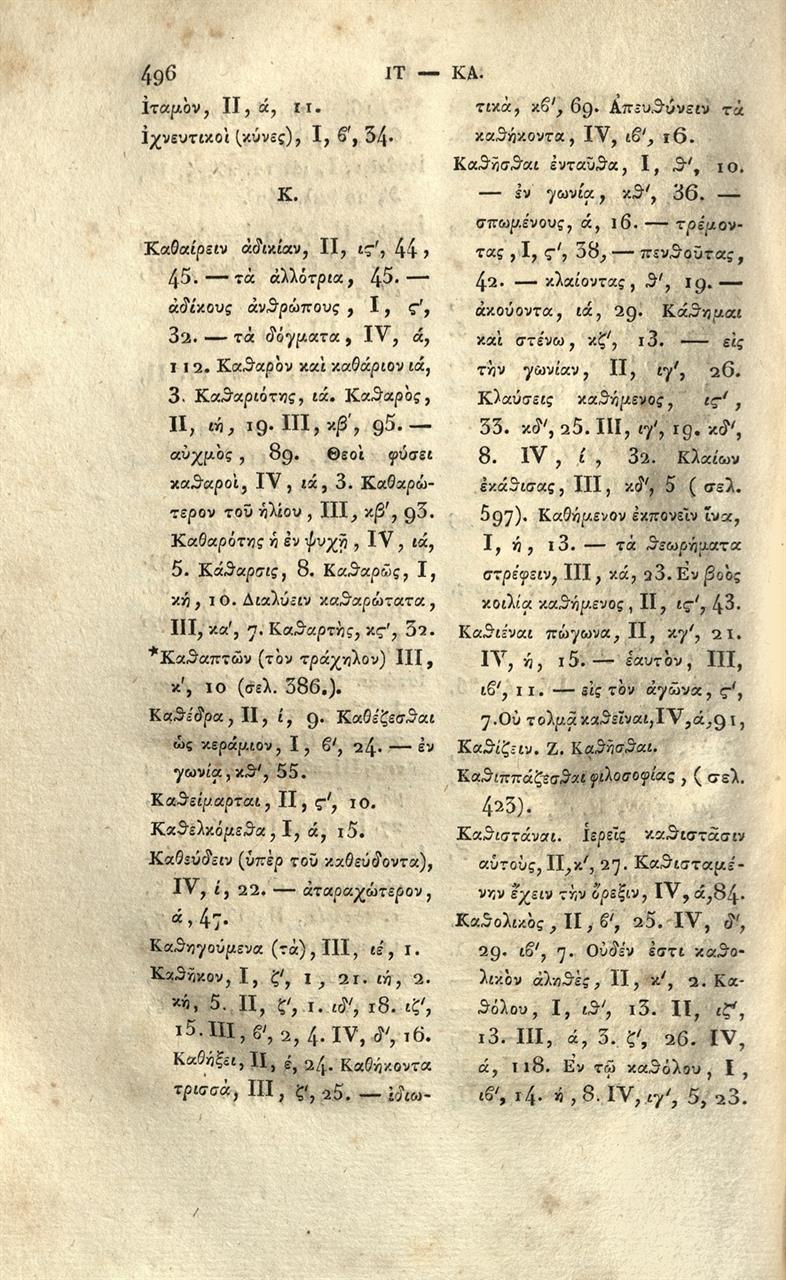 496 ΙΤ — ΚΑ.
ἰταμὸν, II, ά, 11.
ἰχνευτικοὶ (κύνες), I, ϐ΄, 34.
Κ.
Καθαίρειν ἀδικίαν, II, ις΄, 44,
45. — τὰ ἀλλότρια, 45. —
ἀδίκους ἀνθρώπους, I, ς΄,
32. — τὰ δόγματα, IV, ά,
112. Καθαρὸν καὶ καθάριον ιά,
3. Καθαριότης, ιά. Καθαρὸς,
II, ιή, 19. III, κβ΄, 95. —
αὐχμὸς, 89. Θεοὶ φύσει
καθαροὶ, IV, ιά, 3. Καθαρώ-
τερον τοῦ ἡλίου, III, κβ΄, 93.
Καθαρότης ἡ ἐν ψυχῇ, IV, ιά,
5. Κάθαρσις, 8. Καθαρῶς, I,
κή, 10. Διαλύειν καθαρώτατα,
III, κα΄, 7. Καθαρτὴς, κς΄, 32.
*Καθαπτῶν (τὸν τράχηλον) III,
κ΄, 10 (σελ. 386.).
Καθέδρα, II, ί, 9. Καθέζεσθαι
ὡς κεράμιον, I, ϐ΄, 24. — ἐν
γωνίᾳ, κθ΄, 55.
Καθείμαρται, II, ς΄, 10.
Καθελκόμεθα, I, ά, 15.
Καθεύδειν (ὑπὲρ τοῦ καθεύδοντα),
IV, ί, 22. — ἀταραχώτερον,
ά, 47.
Καθηγούμενα (τὰ), III, ιέ, 1.
Καθῆκον, I, ζ΄, 1, 21. ιή, 2.
κή, 5. II, ζ΄, 1. ιδ΄, 18. ιζ΄,
15. III, ϐ΄, 2, 4. IV, δ΄, 16.
Καθήξει, II, έ, 24. Καθήκοντα
τρισσὰ, III, ζ΄, 25. — ἰδιω-
τικὰ, κϐ΄, 69. Ἀπευθύνειν τὰ
καθήκοντα, IV, ιϐ΄, 16.
Καθῆσθαι ἐνταῦθα, I, θ΄, 10.
— ἐν γωνίᾳ, κθ΄, 36. —
σπωμένους, ά, 16. — τρέμον-
τας, I, ς΄, 38, — πενθοῦτας,
42. — κλαίοντας, θ΄, 19. —
ἀκούοντα, ιά, 29. Κάθημαι
καὶ στένω, κζ΄, 13. — εἰς
τὴν γωνίαν, II, ιγ΄, 26.
Κλαύσεις καθήμενος, ις΄,
33. κδ΄, 25. III, ιγ΄, 19. κδ΄,
8. IV, ί, 32. Κλαίων
ἐκάθισας, III, κδ΄, 5 (σελ.
597). Καθήμενον ἐκπονεῖν ἵνα,
I, ή, 13. — τὰ θεωρήματα
στρέφειν, III, κά, 23. Ἐν βοὸς
κοιλίᾳ καθήμενος, II, ις΄, 43.
Καθιέναι πώγωνα, II, κγ΄, 21.
IV, ή, 15. — ἑαυτὸν, III,
ιϐ΄, 11. — εἰς τὸν ἀγῶνα, ς΄,
7. Οὐ τολμᾷ καθεῖναι, IV, ά, 91,
Καθίζειν. Ζ. Καθῆσθαι.
Καθιππάζεσθαι φιλοσοφίας, (σελ.
423).
Καθιστάναι. Ἱερεῖς καθιστᾶσιν
αὑτοὺς, II, κ΄, 27. Καθισταμέ-
νην ἔχειν τὴν ὄρεξιν, IV, ά, 84.
Καθολικὸς, II, ϐ΄, 25. IV, δ΄,
29. ιϐ΄, 7. Οὐδέν ἐστι καθο-
λικὸν ἀληθὲς, II, κ΄, 2. Κα-
θόλου, I, ιθ΄, 13. II, ιζ΄,
13. III, ά, 3. ζ΄, 26. IV,
ά, 118. Ἐν τῷ καθόλου, I,
ιϐ΄, 14. ή, 8. IV, ιγ΄, 5, 23.